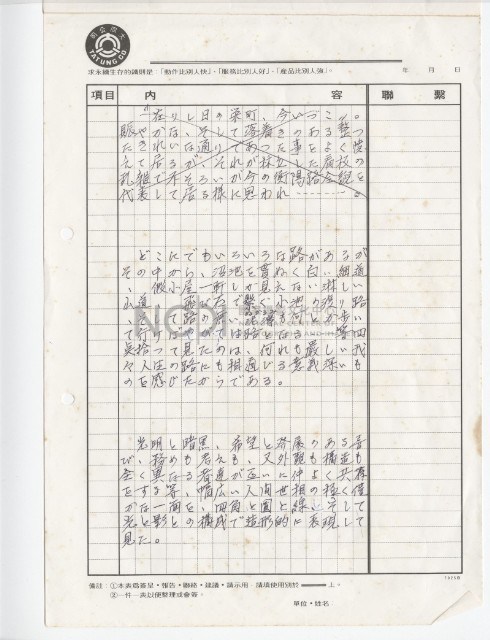 大同公司
TATUNG CO
求永續生存的鐵則是：「動作比別人快」、「服務比別人好」、「產品比別人強」。
年 月 日
項目 內 容 聯 繫
在りし日の栄町、今いづこ。
賑やかな、そして落着きのある整つ
たきれいな通りであった事をよく憶
えて居るが、それが林立した店の
乱雑で不そろいが今の衡陽路全貌を
代表して居る様に思われ
どこにでもいろいろな路があるが
その中から、沼池を貫ぬく白い細道
、小屋一軒しか見えない淋しい
山道、飛び石で繫ぐ小池の渡り路
て行けばやがては路となる 等四
枚拾って見たのは、何れも厳しい我
々人生の路にも相通じる意義深いも
のを感じたからである。
光明と暗黒、希望と 喜
び、 も考えも、又外観も構造も
全く異なる者達が互いに仲よく共存
をする等、幅広い人間世相の極く僅
かな一面を、四角と圓と線、そして
光と影との構成で造形的に表現して
見た。
備註：①本表爲簽呈・報告・聯絡・建議・請示用 請填使用別於 上。
②一件一表以便整理或會簽。
單位・姓名：